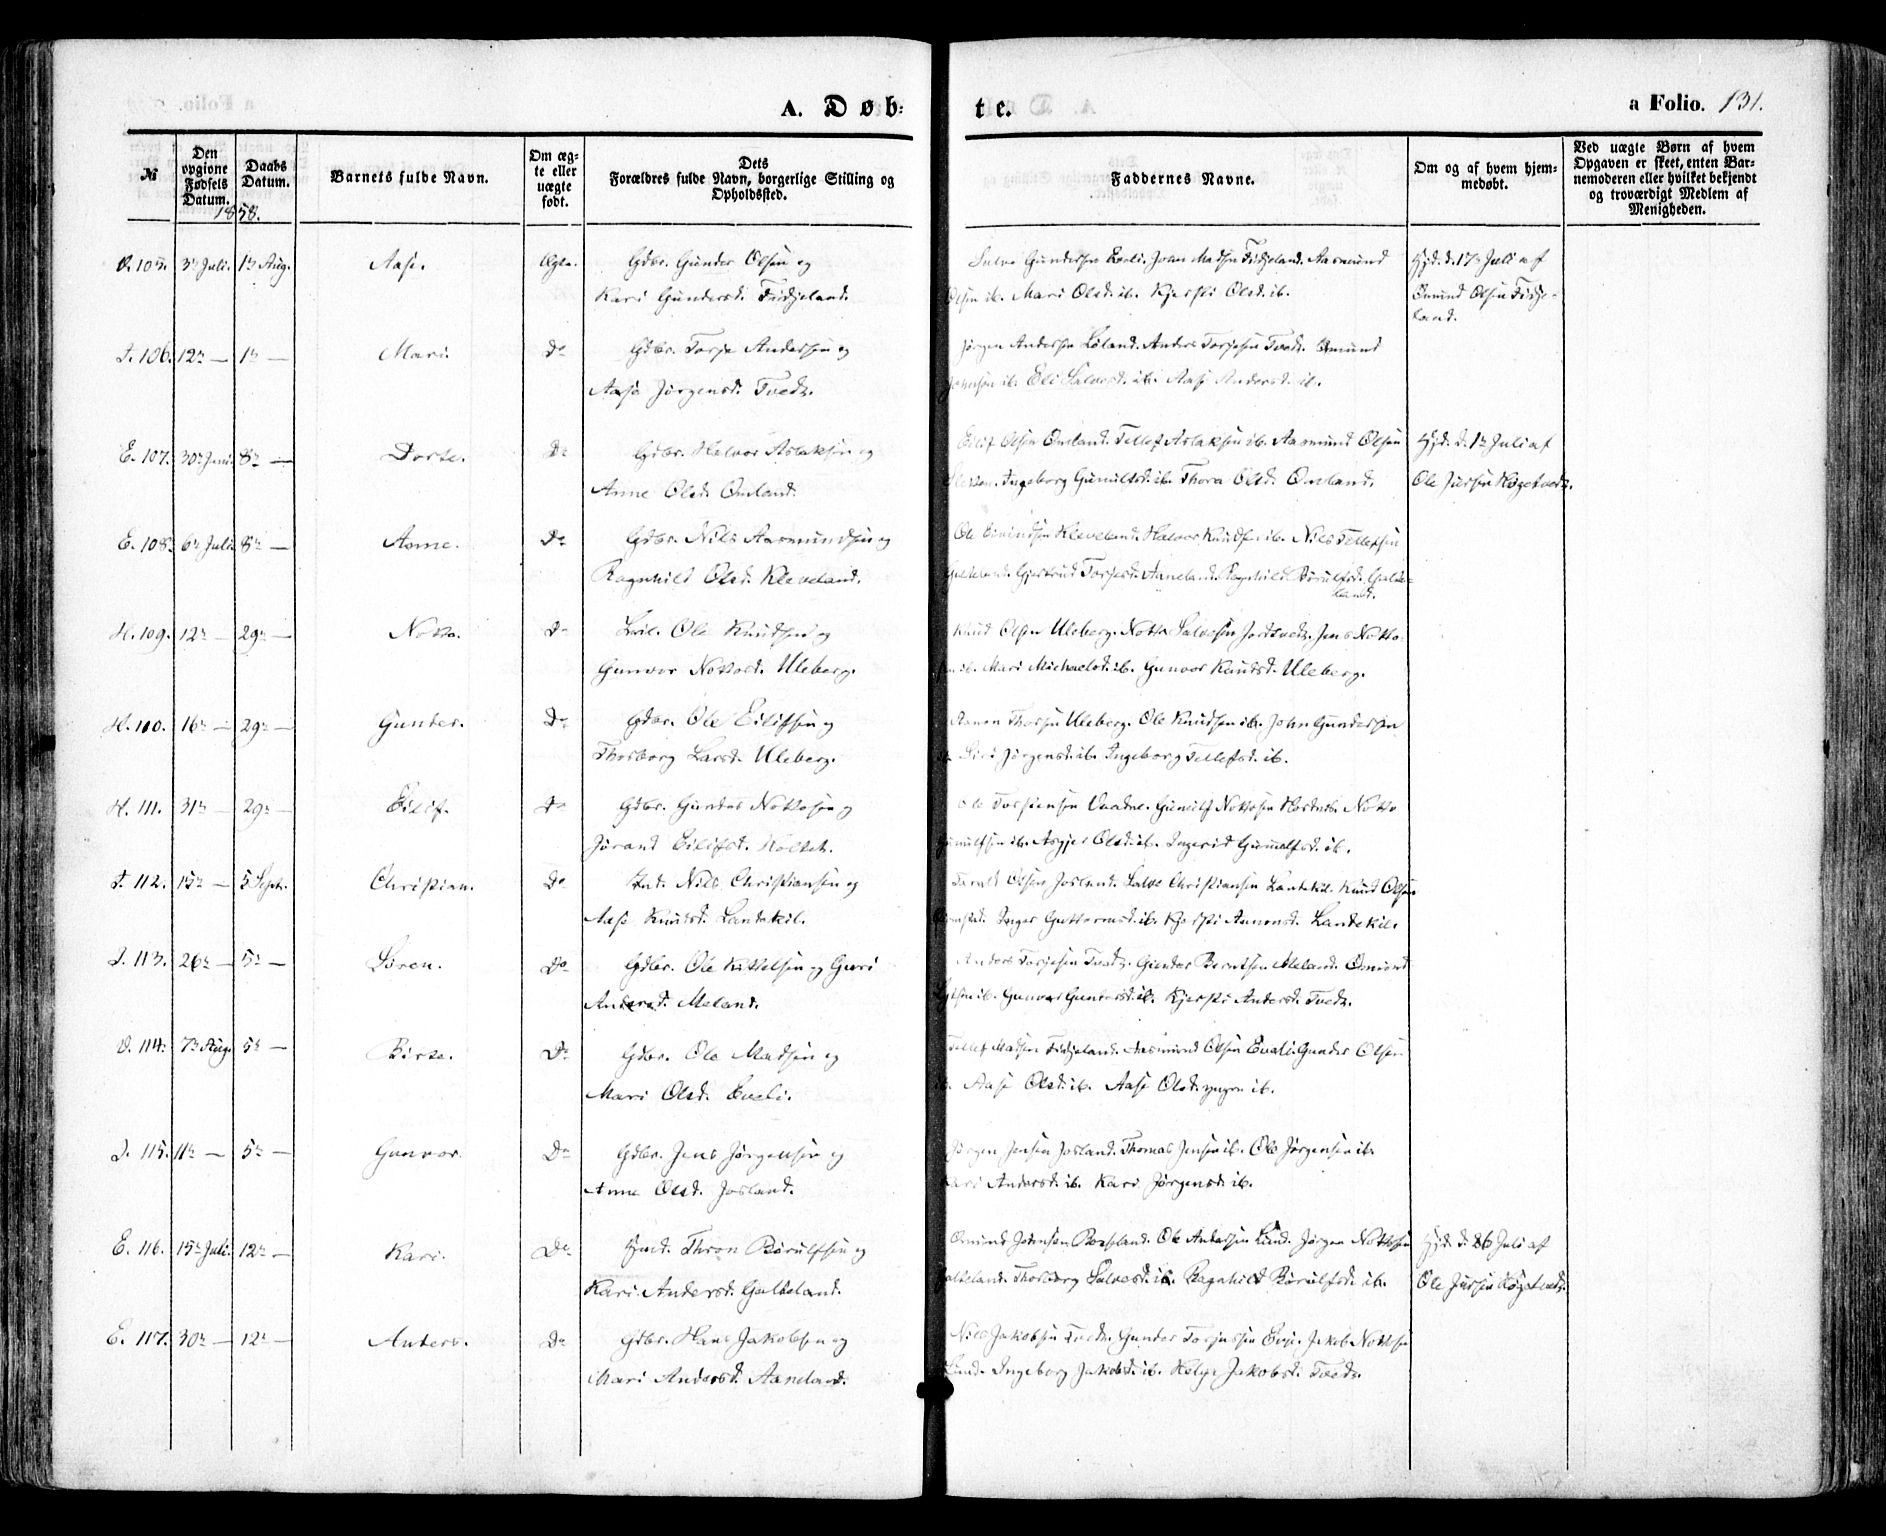 A. Døb-
te.
a Folio. 131.
№
Den opgivne Fødsels Datum.
Daabs Datum.
1858.
Barnets fulde Navn.
Om ægte eller uægte født.
Dets Forældres fulde Navn, borgerlige Stilling og Opholdssted.
Faddernes Navne.
Om og af hvem hjemmedøbt.
Ved uægte Børn af hvem Opgaven er skeet, enten Barnemoderen eller hvilket bekjendt og troværdigt Medlem af Menigheden.
105. 3die Juli. 1ste Aug. Aase. Ægte. Gdbr. Gunder Olsen og
Kari Gundersd. Fidjeland.
Salve Gundersen Eveli. John Madsen Fidjeland. Aasmund
Olsen ib. Mari Olsd. ib. Kjersti Olsd. ib.
Hjd. d. 17de Juli af
Omund Olsen Fidje-
land.
106. 12te — 1ste — Mari. Do Gdbr. Torje Andersen og
Aase Jørgensd. Tvedt.
Jørgen Andersen Løland. Anders Torjesen Tvedt. Omund
Johnsen ib. Eli Salvesd. ib. Aase Andersd. ib.
E. 107. 30te Juni. 8de — Dorte. Do Gdbr. Halvor Aslaksen og
Anne Olsd. Omland.
Eilif Olsen Omland. Tellef Aslaksen ib. Aasmund Olsen
Ingeborg Gunulfsd. ib. Thora Olsd. Omland.
Hjd. d. 1ste Juli af
Ole Jursen Høgetvedt.
E. 108. 6te Juli. 8de — Anne. Do Gdbr. Nils Aasmundsen og
Ragnhild Olsd. Kleveland.
Ole Eivindsen Kleveland. Halvor Knudsen ib. Nils Tellefsen
Gjertrud Torjesd. Aaneland. Ragnhild Børulfsd. Galte-
land.
H. 109. 12te — 29de — Notto. Do Ole Knudsen og
Gunvor Nottosd. Uleberg.
Knud Olsen Uleberg. Notto Salvesen Jortveit. Jens Notto-
sen ib. Mari Michaelsd. ib. Gunvor Knudsd. Uleberg.
H. 110. 16de — 29de — Gunder. Do Gdbr. Ole Eilifsen og
Thorborg Larsd. Uleberg.
Aanon Thorsen Uleberg. Ole Knudsen ib. John Gundersen
ib. Siri Jørgensd. ib. Ingeborg Tellefsd. ib.
H. 111. 31te — 29de — Eilif. Do Gdbr. Gunder Nottosen og
Jørand Eilifsd. Holtet.
Ole Gunulf Nottosen Notto
Gunulfsen ib. Asgjer Olsd. ib. Ingerid Gunulfsd. ib.
112. 15de — 5te Sept. Christian. Do Ind. Nils Christiansen og
Aase Knudsd. Landekil.
Tarald Olsen Josland. Salve Christiansen Landekil. Knud Olsen
Inger Guttormsd. ib. Kjersti Aanonsd. Landekil.
113. 26de — 5te — Søren. Do Gdbr. Ole Kittelsen og Guri
Andersd. Meland.
Anders Torjesen Tvedt. Gunder Berntsen Meland. Omund
ib. Gunvor Gundersd. ib. Kjersti Andersd. Tvedt.
114. 7de Aug. 5te — Birte. Do Gdbr. Ole Madsen og
Mari Olsd. Eveli.
Tellef Madsen Fidjeland. Aasmund Olsen Eveli. Gunder Olsen
ib. Aase Olsd. ib. Aase Olsd. yngre ib.
115. 11te — 5te — Gunvor. Do Gdbr. Jens Jørgensen og
Anne Olsd. Josland.
Jørgen Jensen Josland. Thomas Jensen ib. Ole Jørgensen ib.
Kari Andersd. ib. Kari Jørgensd. ib.
E. 116. 15de Juli. 12te — Kari. Do Thron Børulfsen og
Kari Andersd. Galteland.
Omund Johnsen Ole Andersen Lund. Jørgen Nottosen
Galteland. Thorborg Salvesd. ib. Ragnhild Børulfsd. ib.
Hjd. d. 26 Juli af
Ole Jursen Høgetvedt.
E. 117. 30te — 12te — Anders. Do Gdbr. Hans Jakobsen og
Mari Andersd. Aaneland.
Nils Jakobsen Tvedt. Gunder Torjussen Evje. Jakob Nottosen
Lund. Ingeborg Jakobsd. ib. Helge Jakobsd. Tvedt.